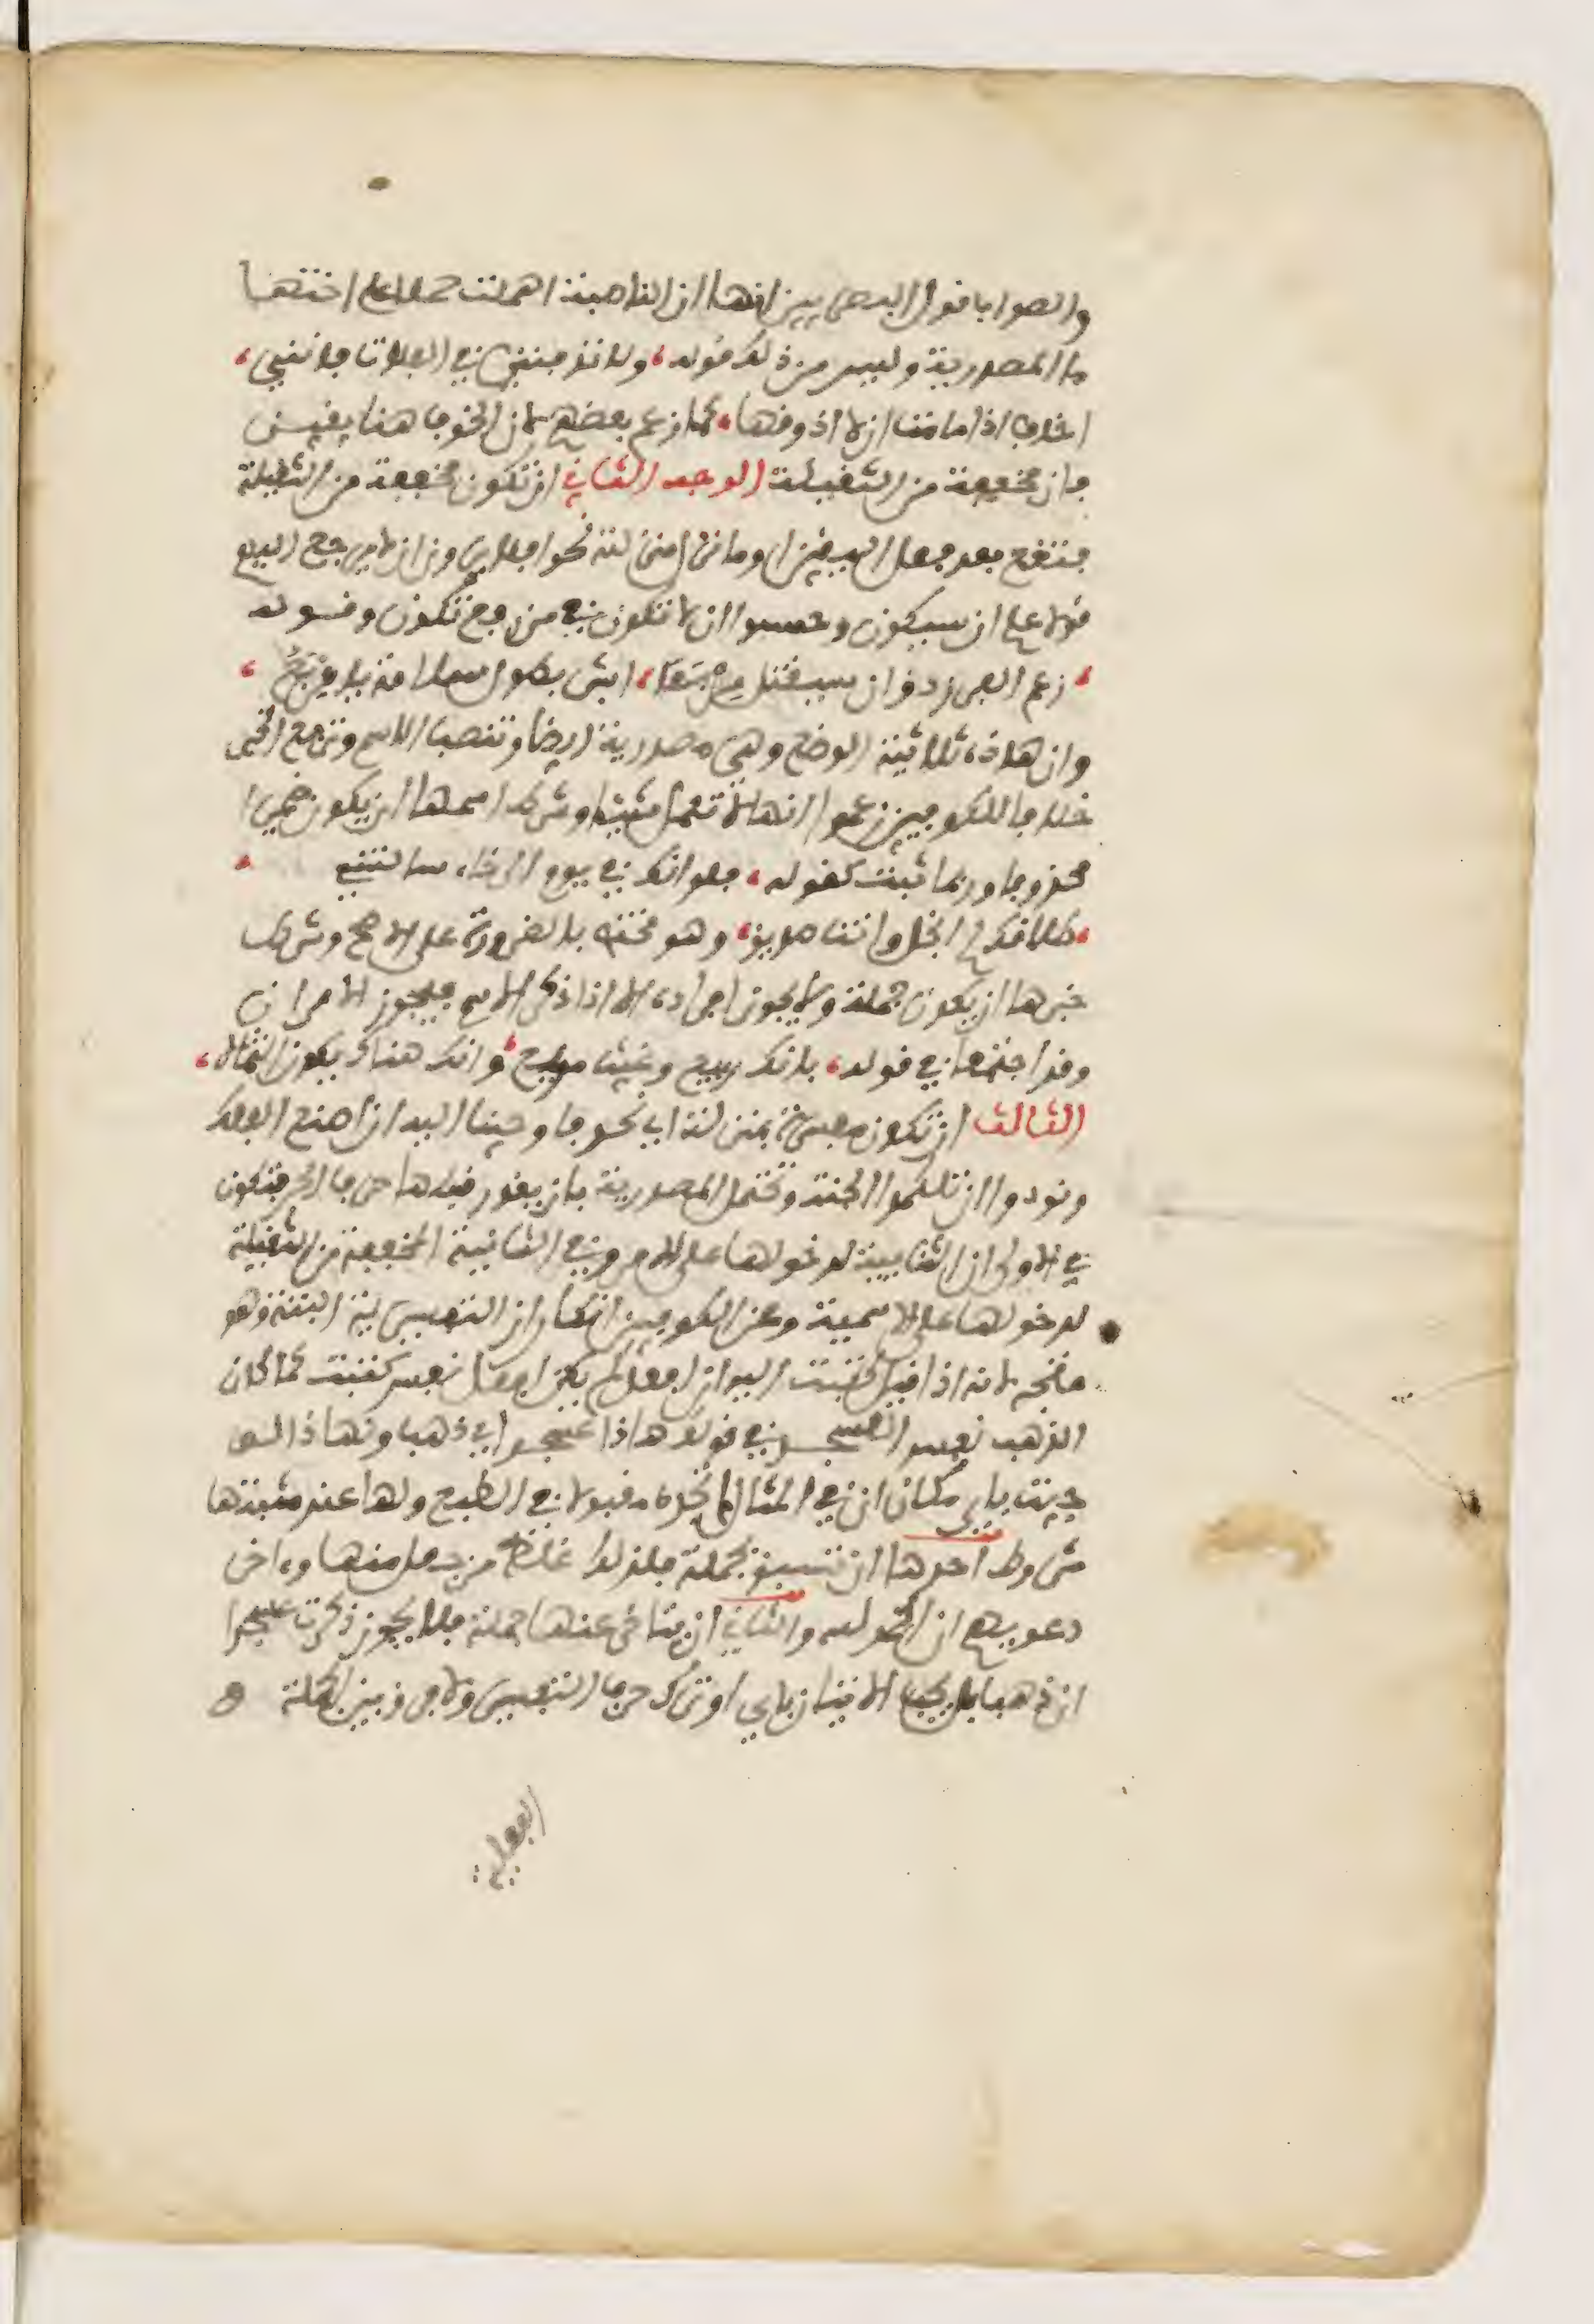 والصواب قول البصريين انها ان الناصبة اهملت حملا على اختها
ما المصدرية وليس من ذلك قوله، ولا تدفنني في الفلاة فانني،
اخاف اذا ما مت ان لا اذوقها، كما زعم بعضهم لان الخوف هنا يقين
فان مخففة من الثقيلة الوجه الثاني ان تكون مخففة من الثقيلة
فتقع بعد فعل اليقين او ما نزل منزلته نحو افلا يرون ان لا يرجع اليهم
قولا علم ان سيكون وحسبوا ان لا تكون فيمن رفع تكون وقوله
، زعم الفرزدق ان سيقتل مربعا، ابشر بطول سلامة يا مربع،
وان هاذه ثلاثية الوضع وهي مصدرية ايضا وتنصب الاسم وترفع الخبر
خلافا للكوفيين زعموا انها لا تعمل شيئا وشرط اسمها ان يكون ضميرا
محذوفا وربما ثبت كقوله، فلو انك في يوم الرخاء سالتني
، طلاقك لم ابخل وانت صديق، وهو مختص بالضرورة على الاصح وشرط
خبرها ان يكون جملة ولا يجوز افراده الا اذا ذكر الاسم فيجوز الامران
وقد اجتمعا في قوله، بانك ربيع وغيث مريع، وانك هناك يكون الثمالا،
الثالث ان تكون مفسرة بمنزلة اي نحو فاوحينا اليه ان اصنع الفلك
ونودوا ان تلكموا الجنة وتحتمل المصدرية بان يقدر قبلها حرف الجر فتكون
في الاولى ان الثنايية لدخولها على الامر وفي الثانية المخففة من الثقيلة
لدخولها على الاسمية وعن الكوفيين انكار ان التفسيرية البتة وهو
متجه لانه اذا قيل كتبت اليه ان افعل لم يكن افعل نفس كتبت كما كان
الذهب نفس العسجد في قولك هاذا عسجد اي ذهب ولهاذا لو
جيت باي مكان ان في المثال لم تجده مقبولا في الطبع ولها عند مثبتها
شروط احدها ان تسبق بجملة فلذلك غلط من جعل منها وءاخر
دعويهم ان الحمد لله والثاني ان يتاخر عنها جملة فلا يجوز ذكرت عسجدا
ان ذهبا بل يجب الاتيان باي او ترك حرف التفسير ولا فرق بين الجملة
الفعلية